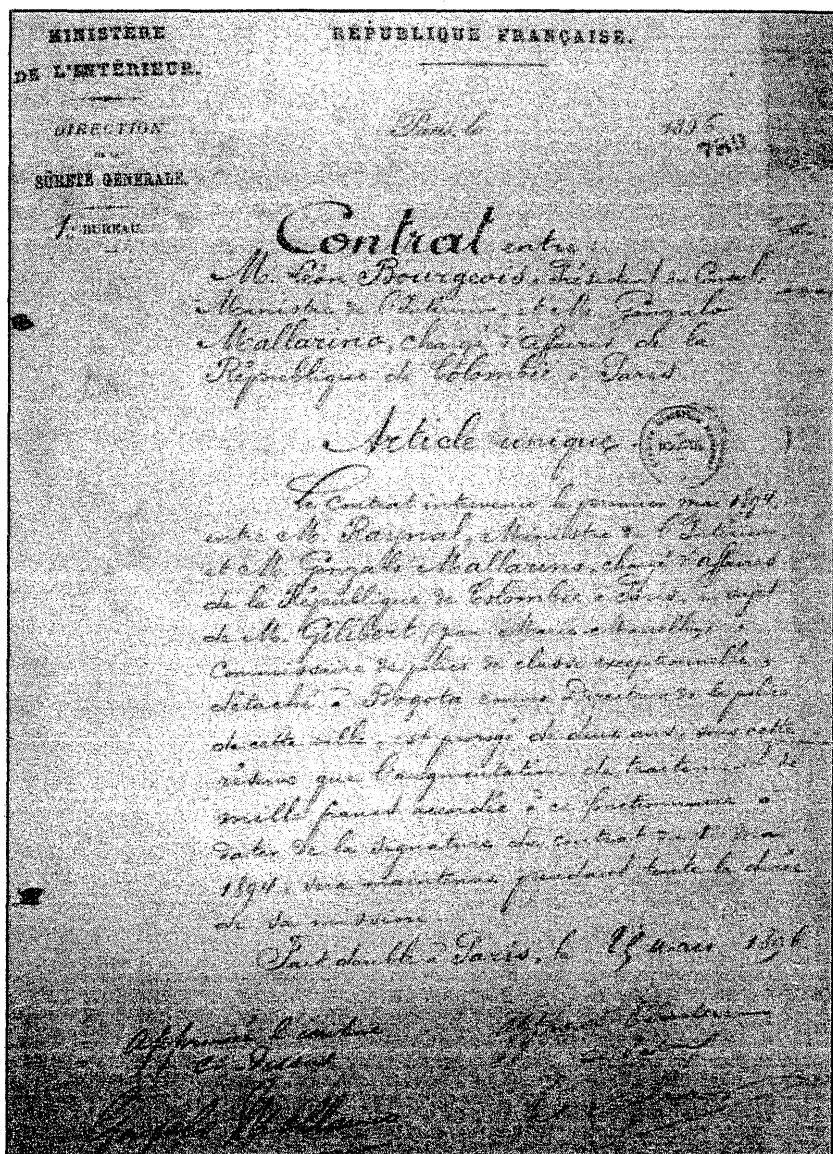 MINISTÈRE
DE L'INTÉRIEUR.
DIRECTION
DE LA
SÛRETÉ GÉNÉRALE.
1er BUREAU.
RÉPUBLIQUE FRANÇAISE.
Paris, le 1896
Contrat entre :
M. Léon Bourgeois, Président du Conseil,
Ministre de l'Intérieur et M. Gonzalo
Mallarino, chargé d'affaires de la
République de Colombie à Paris
Article unique.
Le contrat intervenu le premier mai 1894,
entre M. Raynal, Ministre de l'Intérieur
et M. Gonzalo Mallarino, chargé d'affaires
de la République de Colombie à Paris, au sujet
de M. Gilibert (Jean Marie Marcellin),
Commissaire de police de classe exceptionnelle,
détaché à Bogota comme Directeur de la police
de cette ville, est prorogé de deux ans, sous cette
réserve que l'augmentation de traitement de
mille francs accordée à ce fonctionnaire à
dater de la signature du contrat du 1er mai
1894, sera maintenue pendant toute la durée
de sa mission.
Fait double à Paris, le mars 1896
Approuvé l'écriture
Approuvé l'écriture
Gonzalo Mallarino